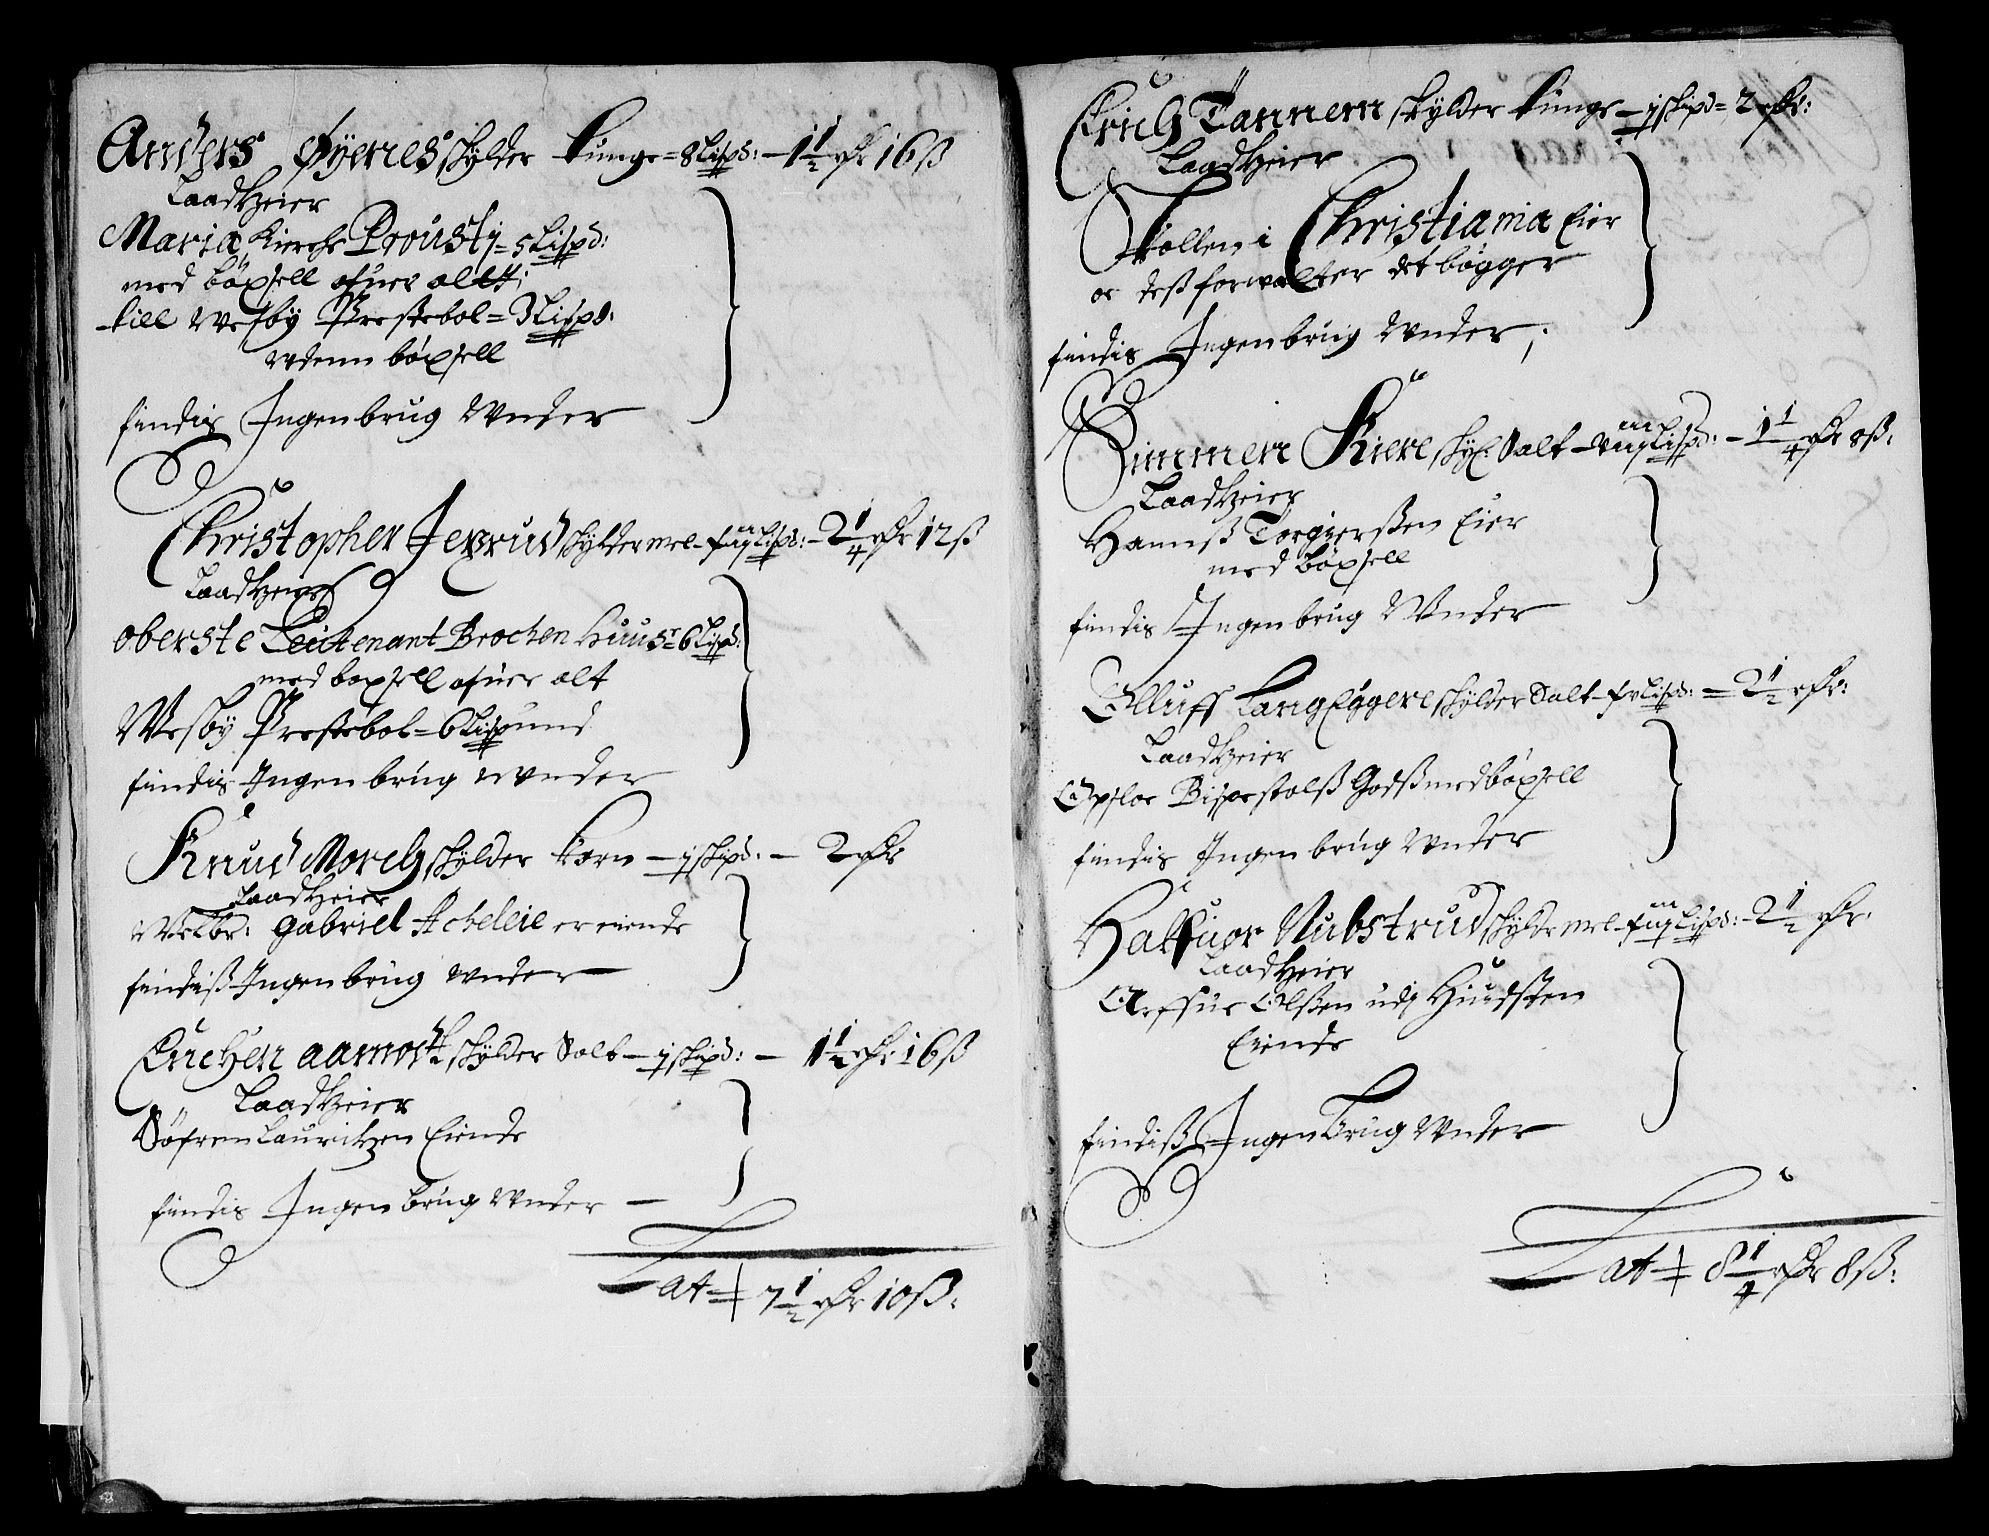 Anders Øyenes skylder tunge = 8 Lispd: - 1 1/2 rdr 16 ß
Laadtzeier
Maria Kierche Prousty = 5 Lispd:
med böxsell ofuer altt;
till Wesby Prestebol = 3 Lispd:
vdenn böxsell
findis Ingen brug Vnder
Christopher Jexrud skylder mel - Lispd: - 2 1/4 rdr 12 ß
Laadtzeier
oberste Leutenant Brochen Huus = 6 Lispd:
med böxsell ofuer alt
Wesby Prestebol = 6 Lispund
findis Ingen brug Vnder
Knud Morch skylder korn - j skipd: - 2 rdr
Laadtzeier
Welbr: Gabriel Acheleie er eiende
findiß Ingen brug vnder
Erichen aamodt skylder Salt - j skipd: - 1 1/2 rdr 16 ß
Laadtzeier
Söfren Lauritzen Eiende
findis Ingen brug Vnder
Lat 7 1/2 rdr 10 ß:
Erich Tannem skylder tunge - j skipd = 2 rdr:
Laadtzeier
Skollen i Christiania Eier
oc deß forwalter det bögger
findis Ingen brug Vnder;
Simmen Kiere skyl: Salt - Lispd: - 1 1/4 rdr 8 ß:
Laadtzeier
Hannß Torgierßen Eier
med böxsell
findis Ingen brug Vnder
Olluff LangEggere skylder Salt - Lispd: = 2 1/2 rdr:
Laadtzeier
Opsloe Bispestolß Godß med böxsell
findis Ingen brug Vnder
Halfuor Nubstrud skylde mel - Lispd: - 2 1/2 rdr:
Laadtzeier
Arffue Olßen udj Hundsten
Eiende
findiß Ingen Brug Vnder
Lat 8 1/4 rdr 8 ß: